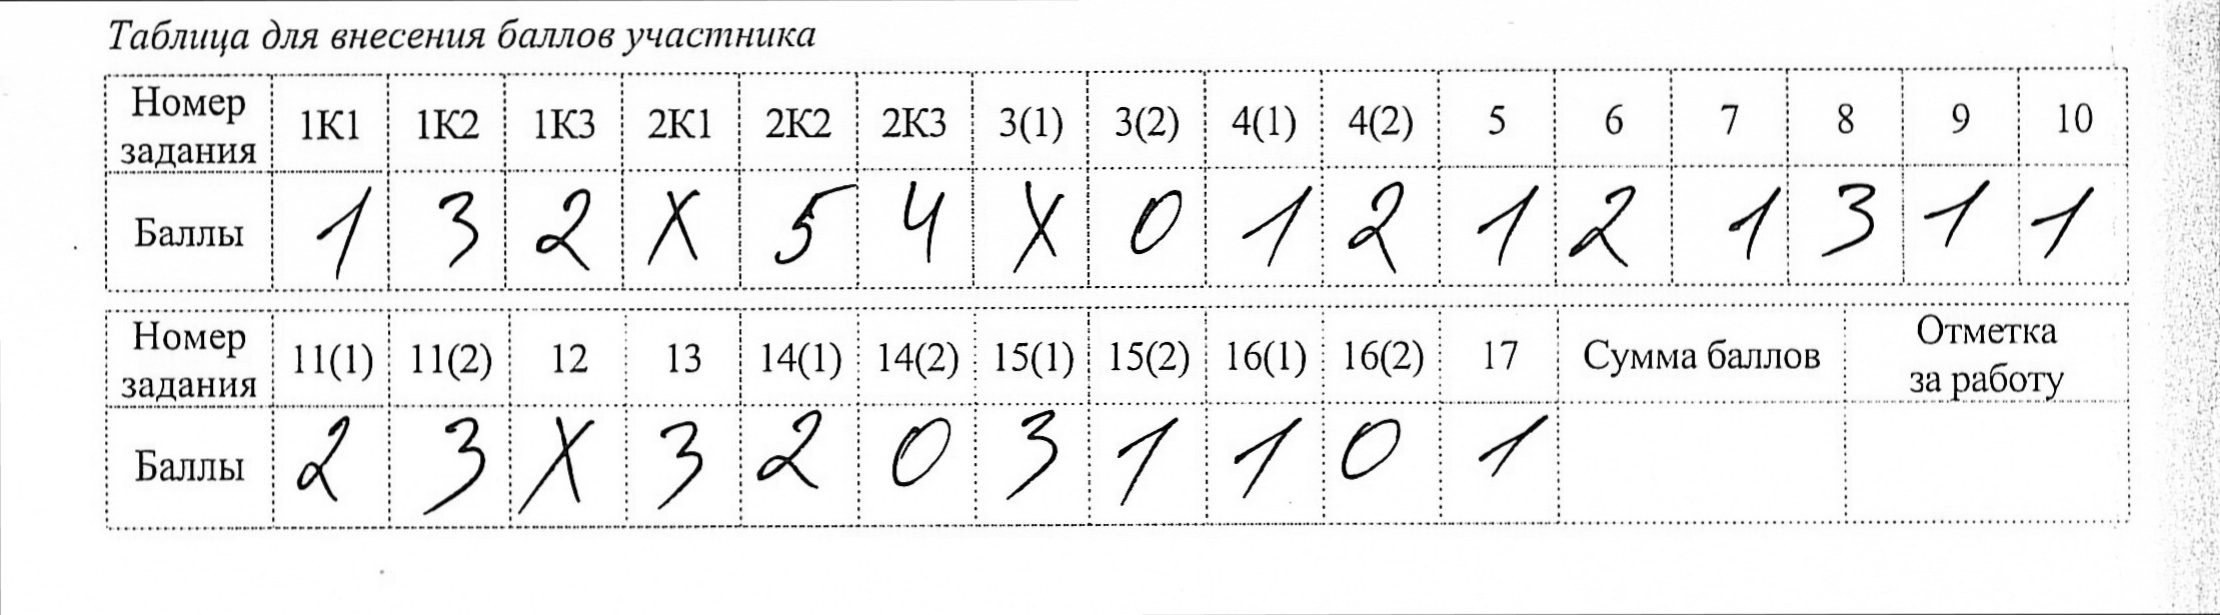 Таблица для внесения баллов участника
Номер задания 1К1 1К2 1К3 2К1 2К2 2К3 3(1) 3(2) 4(1) 4(2) 5 6 7 8 9 10
Баллы 1 3 2 X 5 4 X 0 1 2 1 2 1 3 1 1
Номер задания 11(1) 11(2) 12 13 14(1) 14(2) 15(1) 15(2) 16(1) 16(2) 17 Сумма баллов Отметка за работу
Баллы 2 3 X 3 2 0 3 1 1 0 1